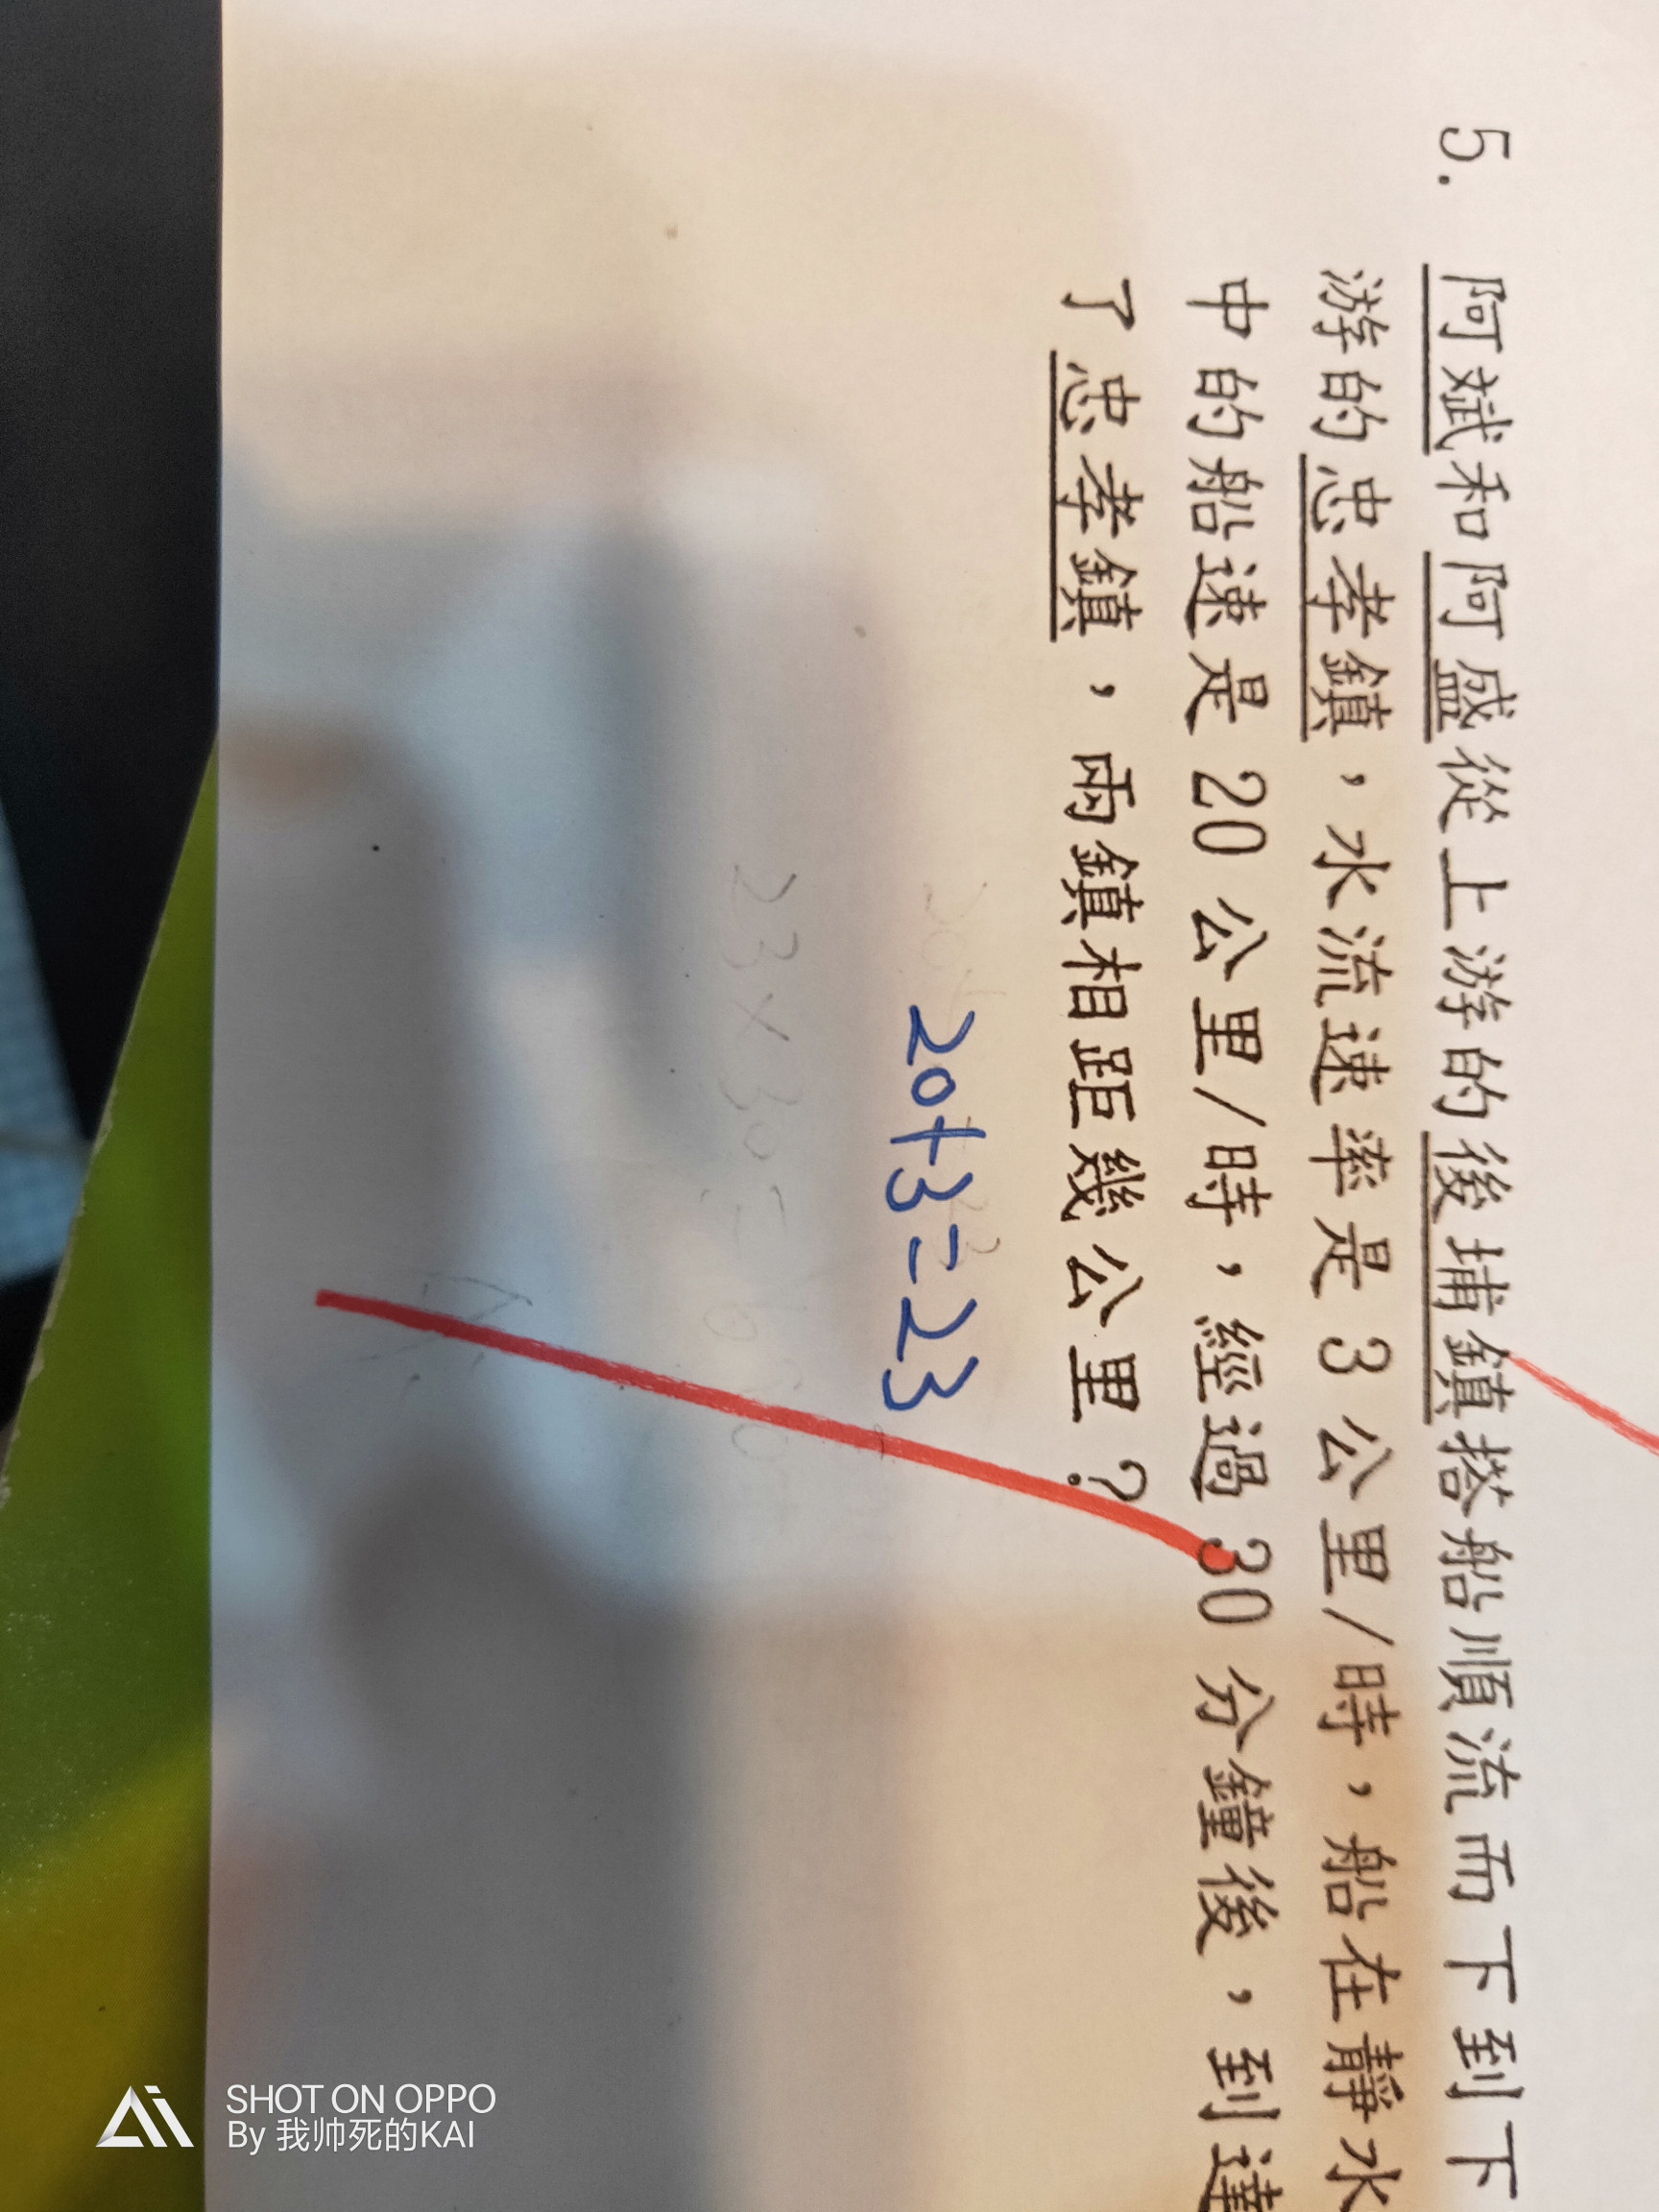 5. 阿斌和阿盛從上游的後埔鎮搭船順流而下到下
游的忠孝鎮，水流速率是 3 公里/時，船在靜水
中的船速是 20 公里/時，經過 30 分鐘後，到達
了忠孝鎮，兩鎮相距幾公里？
20+3=23
23×30=
SHOT ON OPPO
By 我帅死的KAI